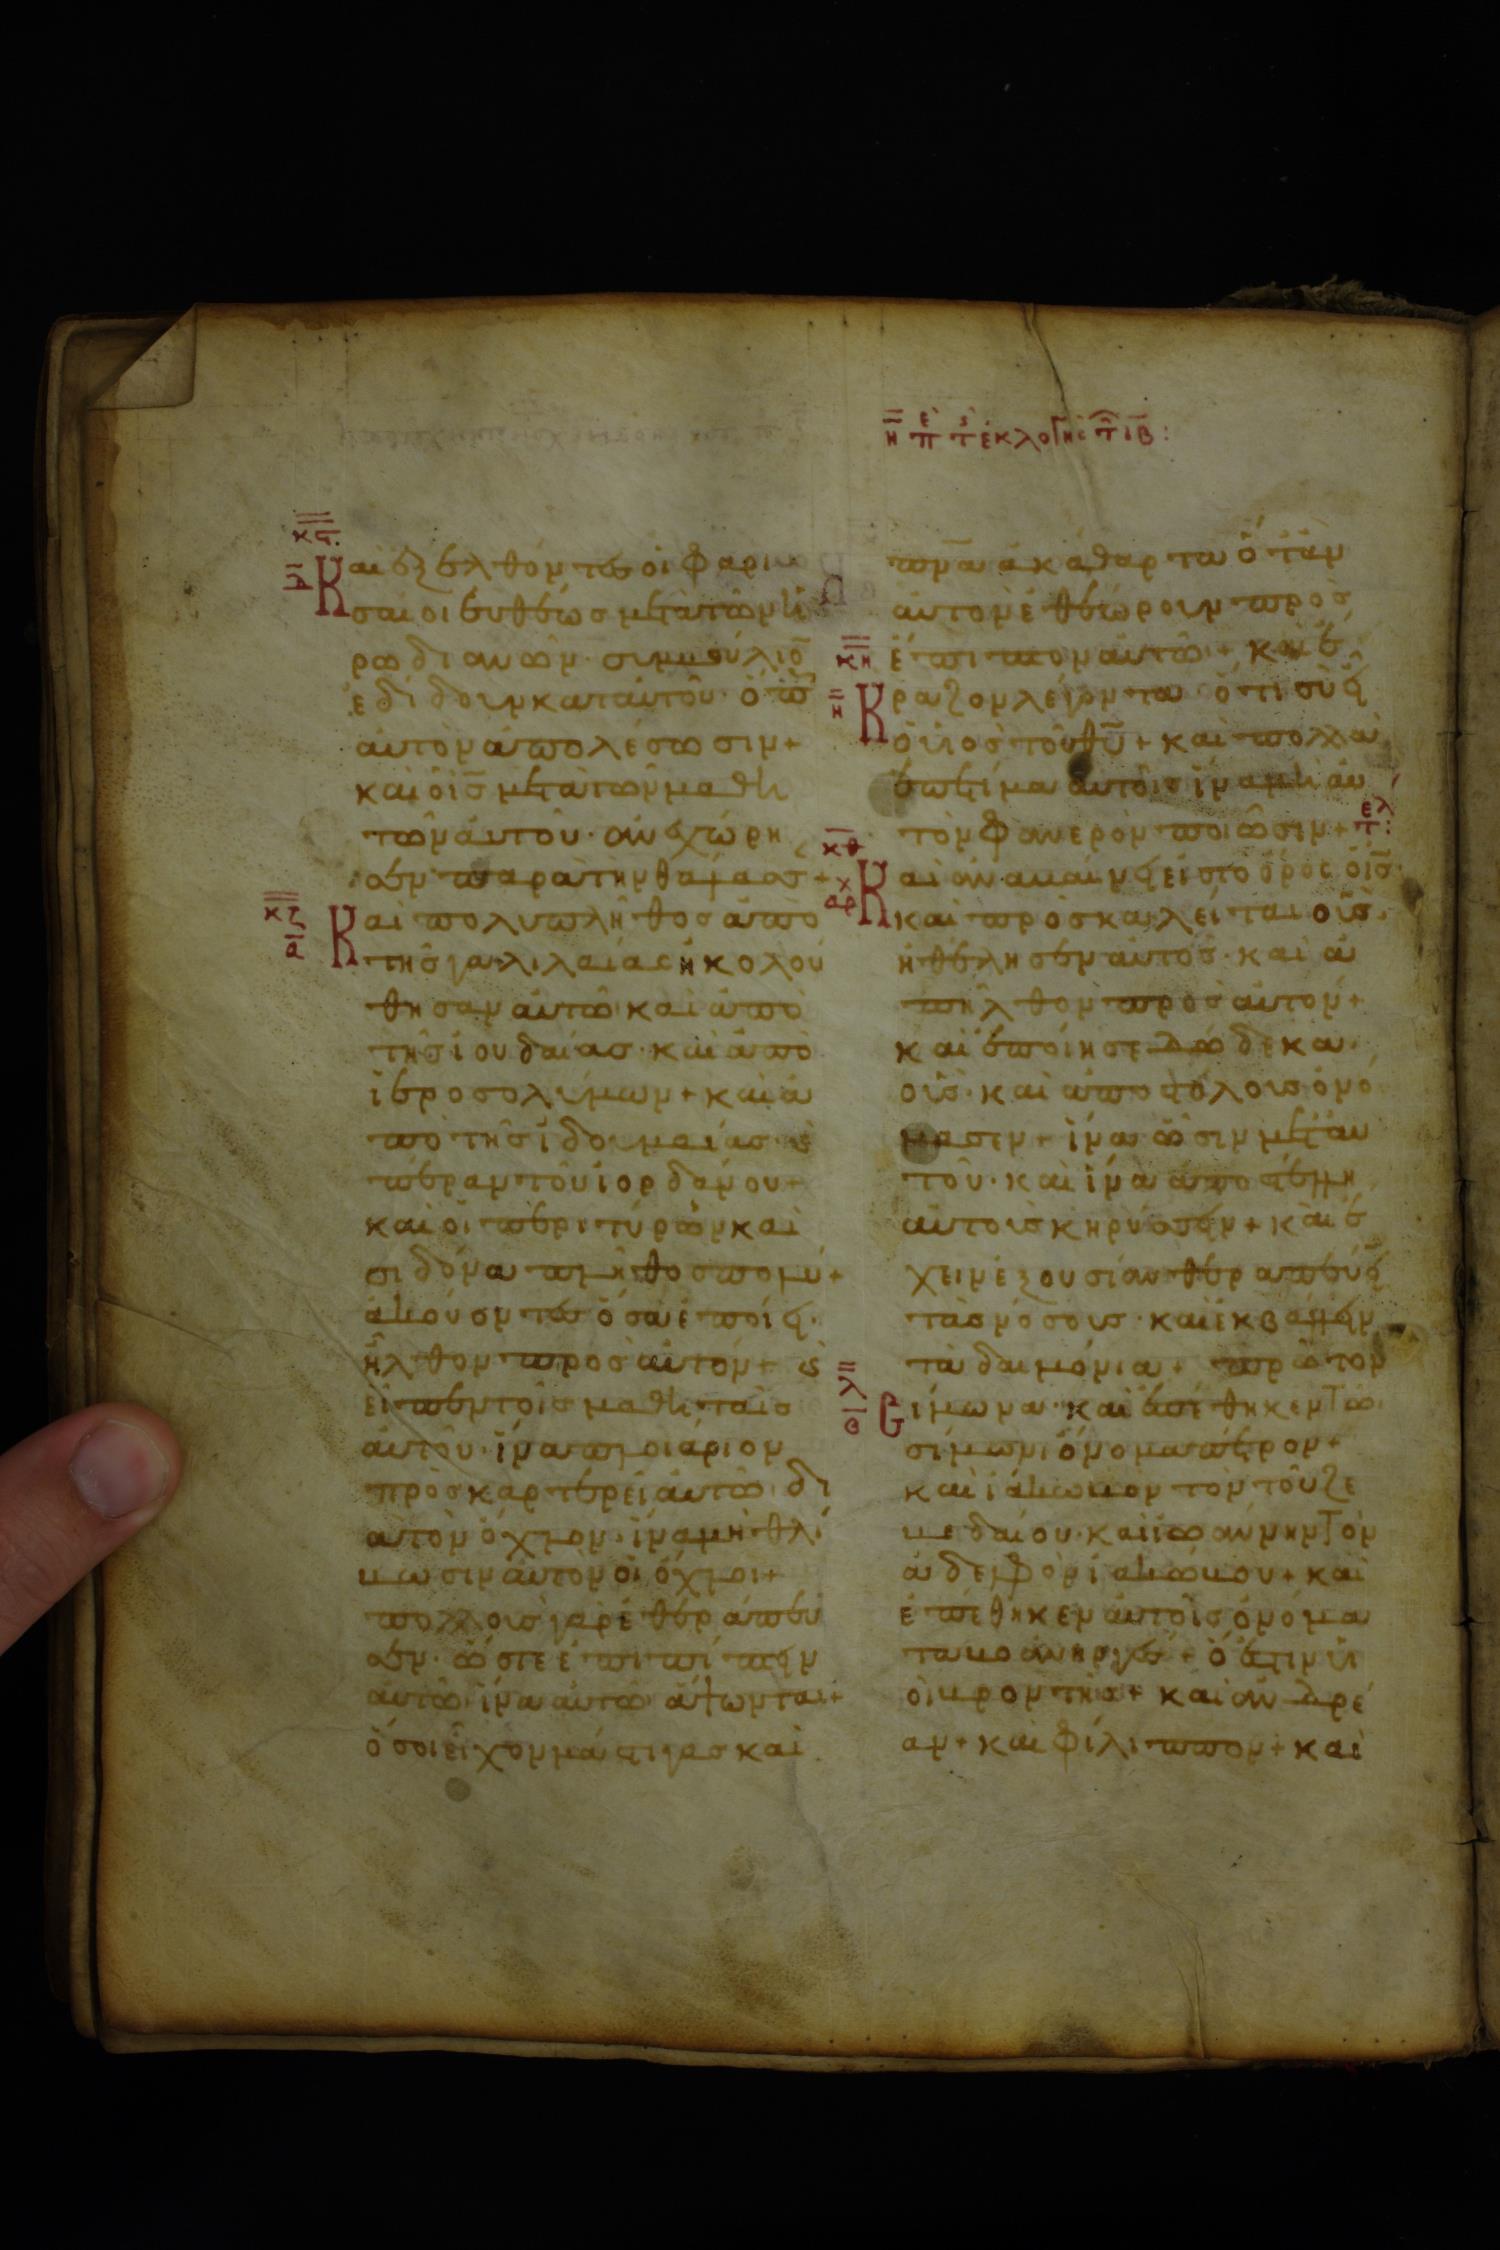 Και εξελθόντες οι φαρι
σαίοι ευθέως μετα των η
ρωδιανων· συμβούλιον
εδίδουν κατ αυτου· όπως
αυτον απολέσωσιν+
και ο ις μετα των μαθη
των αυτου· ανεχώρη
σεν παρα την θάλασσαν+
Και πολυ πληθος απο
της γαλιλαίας ηκολού
θησαν αυτω· και απο
της ιουδαίας· και απο
ιεροσολύμων+ και α
πο της ιδουμαίας· και
πέραν του ιορδάνου+
και οι περι τύρον και
σιδόνα πληθος πολύ+
ακούσαντες όσα εποίει·
ηλθον προς αυτόν+ και
είπεν τοις μαθηταις
αυτου· ίνα πλοιάριον
προσκαρτερει αυτω· δι
α τον όχλον· ίνα μη θλί
βωσιν αυτον οι όχλοι+
πολλους γαρ εθεράπευ
σεν· ώστε επιπίπτειν
αυτω· ίνα αυτω άψωνται+
όσοι ειχον μάστιγας και
η επ τ εκλογης τ ιβ:
πνα ακάθαρτα όταν
αυτον εθεώρουν προς
έπιπτον αυτω+ και έ
κραζον λέγοντα· ότι συ ει
ο υιος του θυ+ και πολλα
επετίμα αυτοις ίνα μη αυ
τον φανερον ποιωσιν+ τελ:
Και αναβαίνει εις το όρος ο ις·
και προσκαλείται ους
ηθέλησεν αυτός· και α
πηλθον προς αυτον+
και εποίησε δώδεκα·
ους· και αποστόλους ονό
μασεν+ ίνα ωσιν μετ αυ
του· και ίνα αποστέλλη
αυτους κηρύσσειν+ και έ
χειν εξουσίαν θεραπεύει
τας νόσους· και εκβάλλειν
τα δαιμόνια+ πρωτον
Σίμωνα· και επέθηκεν τω
σίμωνι όνομα πέτρον+
και ιάκωβον τον του ζε
βεδαίου· και ιωάννην τον
αδελφον ιακώβου+ και
επέθηκεν αυτοις ονόμα
τα βοανηργές+ ό εστιν υι
οι βροντης+ και ανδρέ
αν+ και φίλιππον+ και